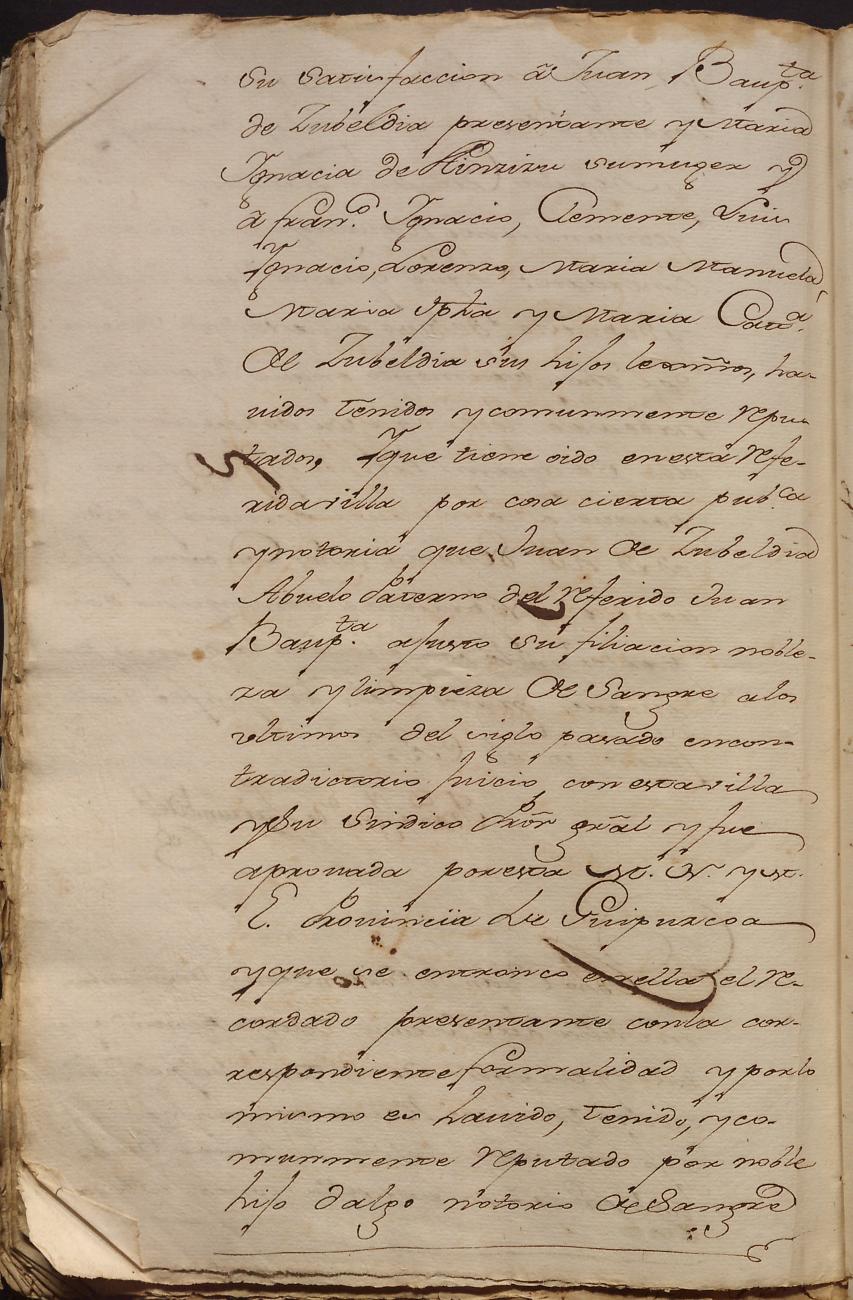 Su satisfaccion â Juan Baup.ta
de Zubeldia presentante y Maria
Ygnacia de Hinzizu sumuger y
â fran.co Ygnacio, Clemente, Luis
Ygnacio, Lorenzo, Maria Manuela,
Maria Jpha y Maria Cata.a
de Zubeldia sus hijos lexmõs, ha-
uidos tenidos ycomunmente repu-
tados, Yque tiene oido enesta refe-
ridavilla por cosa cierta pub.ca
ynotoria que Juan de Zubeldia
Abuelo Paterno del referido Juan
Baup.ta ajusto su filiacion noble-
za ylimpieza de Sangre alos
vltimos del siglo pasado encon-
tradictorio Juicio, con estavilla
ysu Sindico Prõr grãl y fue
aprouada poresta M. N. y M.
L. Prouincia de Guipuzcoa
yque se entronco enella el re-
cordado presentante conla cor-
respondiente formalidad y porlo
mismo es hauido, tenido, yco-
munmente reputado por noble
hijo dalgo notorio de Sangre